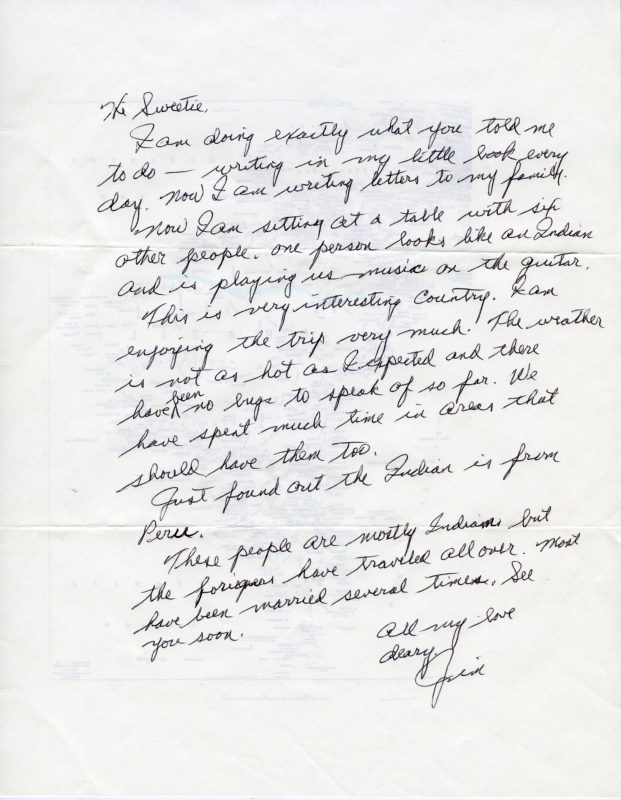 Hi Sweetie,
I am doing exactly what you told me
to do — writing in my little book every
day. Now I am writing letters to my family.
Now I am sitting at a table with six
other people. one person looks like an Indian
and is playing us music on the guitar.
This is very interesting Country. I am
enjoying the trip very much. The weather
is not as hot as I expected and there
have been no bugs to speak of so far. We
have spent much time in areas that
should have them too.
Just found out the Indian is from
Peru.
These people are mostly Indians but
the foriegners have traveled all over. Most
have been married several times. See
you soon.
All my love
deary,
Jim